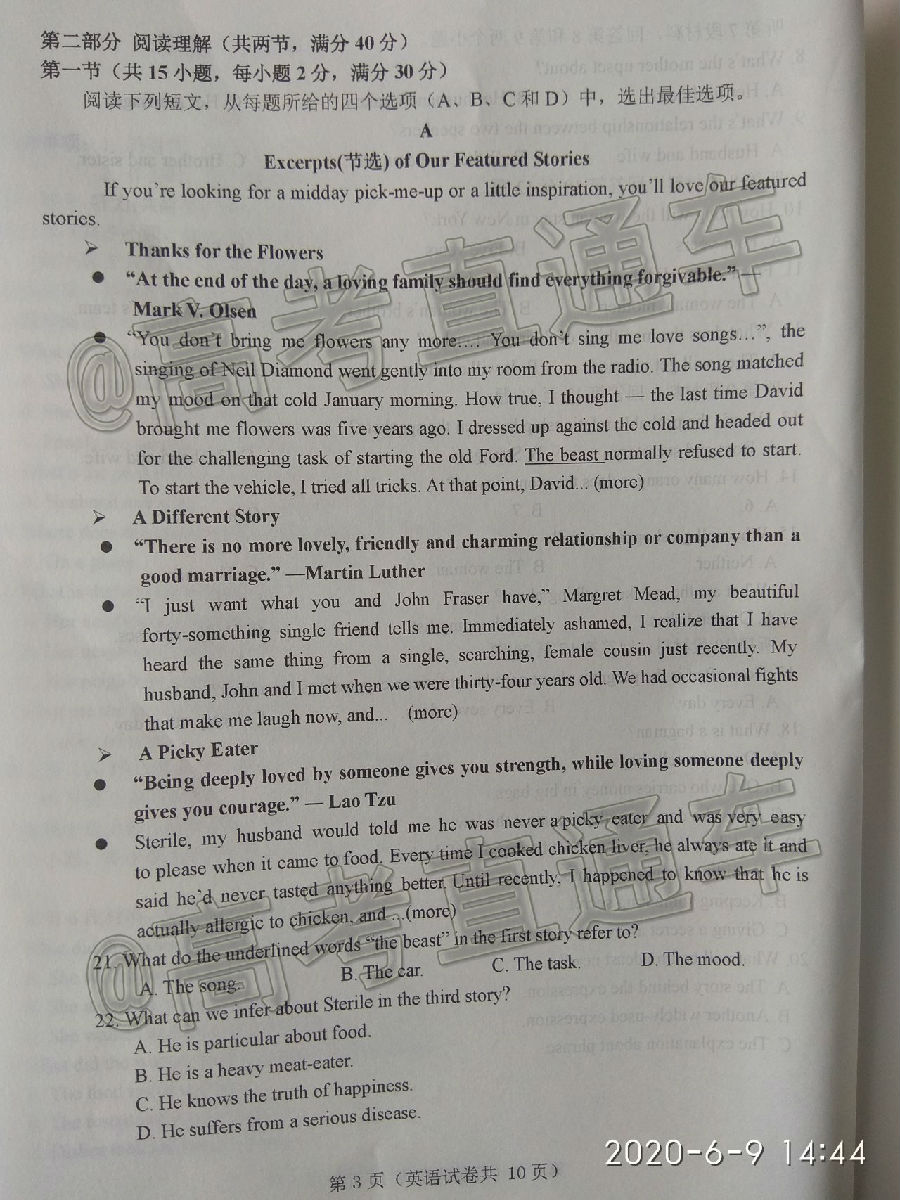 第二部分 阅读理解（共两节，满分 40 分）
第一节（共 15 小题，每小题 2 分，满分 30 分）
阅读下列短文，从每题所给的四个选项（A、B、C 和 D）中，选出最佳选项。
A
Excerpts(节选) of Our Featured Stories
If you're looking for a midday pick-me-up or a little inspiration, you'll love our featured
stories.
➢ Thanks for the Flowers
● “At the end of the day, a loving family should find everything forgivable.” —
Mark V. Olsen
● “You don't bring me flowers any more.… You don't sing me love songs…”, the
singing of Neil Diamond went gently into my room from the radio. The song matched
my mood on that cold January morning. How true, I thought — the last time David
brought me flowers was five years ago. I dressed up against the cold and headed out
for the challenging task of starting the old Ford. The beast normally refused to start.
To start the vehicle, I tried all tricks. At that point, David... (more)
➢ A Different Story
● “There is no more lovely, friendly and charming relationship or company than a
good marriage.” —Martin Luther
● “I just want what you and John Fraser have,” Margret Mead, my beautiful
forty-something single friend tells me. Immediately ashamed, I realize that I have
heard the same thing from a single, searching, female cousin just recently. My
husband, John and I met when we were thirty-four years old. We had occasional fights
that make me laugh now, and... (more)
➢ A Picky Eater
● “Being deeply loved by someone gives you strength, while loving someone deeply
gives you courage.” — Lao Tzu
● Sterile, my husband would told me he was never a picky eater and was very easy
to please when it came to food. Every time I cooked chicken liver, he always ate it and
said he'd never tasted anything better. Until recently, I happened to know that he is
actually allergic to chicken, and ...(more)
21. What do the underlined words “the beast” in the first story refer to?
A. The song. B. The car. C. The task. D. The mood.
22. What can we infer about Sterile in the third story?
A. He is particular about food.
B. He is a heavy meat-eater.
C. He knows the truth of happiness.
D. He suffers from a serious disease.
第 3 页（英语试卷共 10 页）
2020-6-9 14:44
@高考直通车
@高考直通车